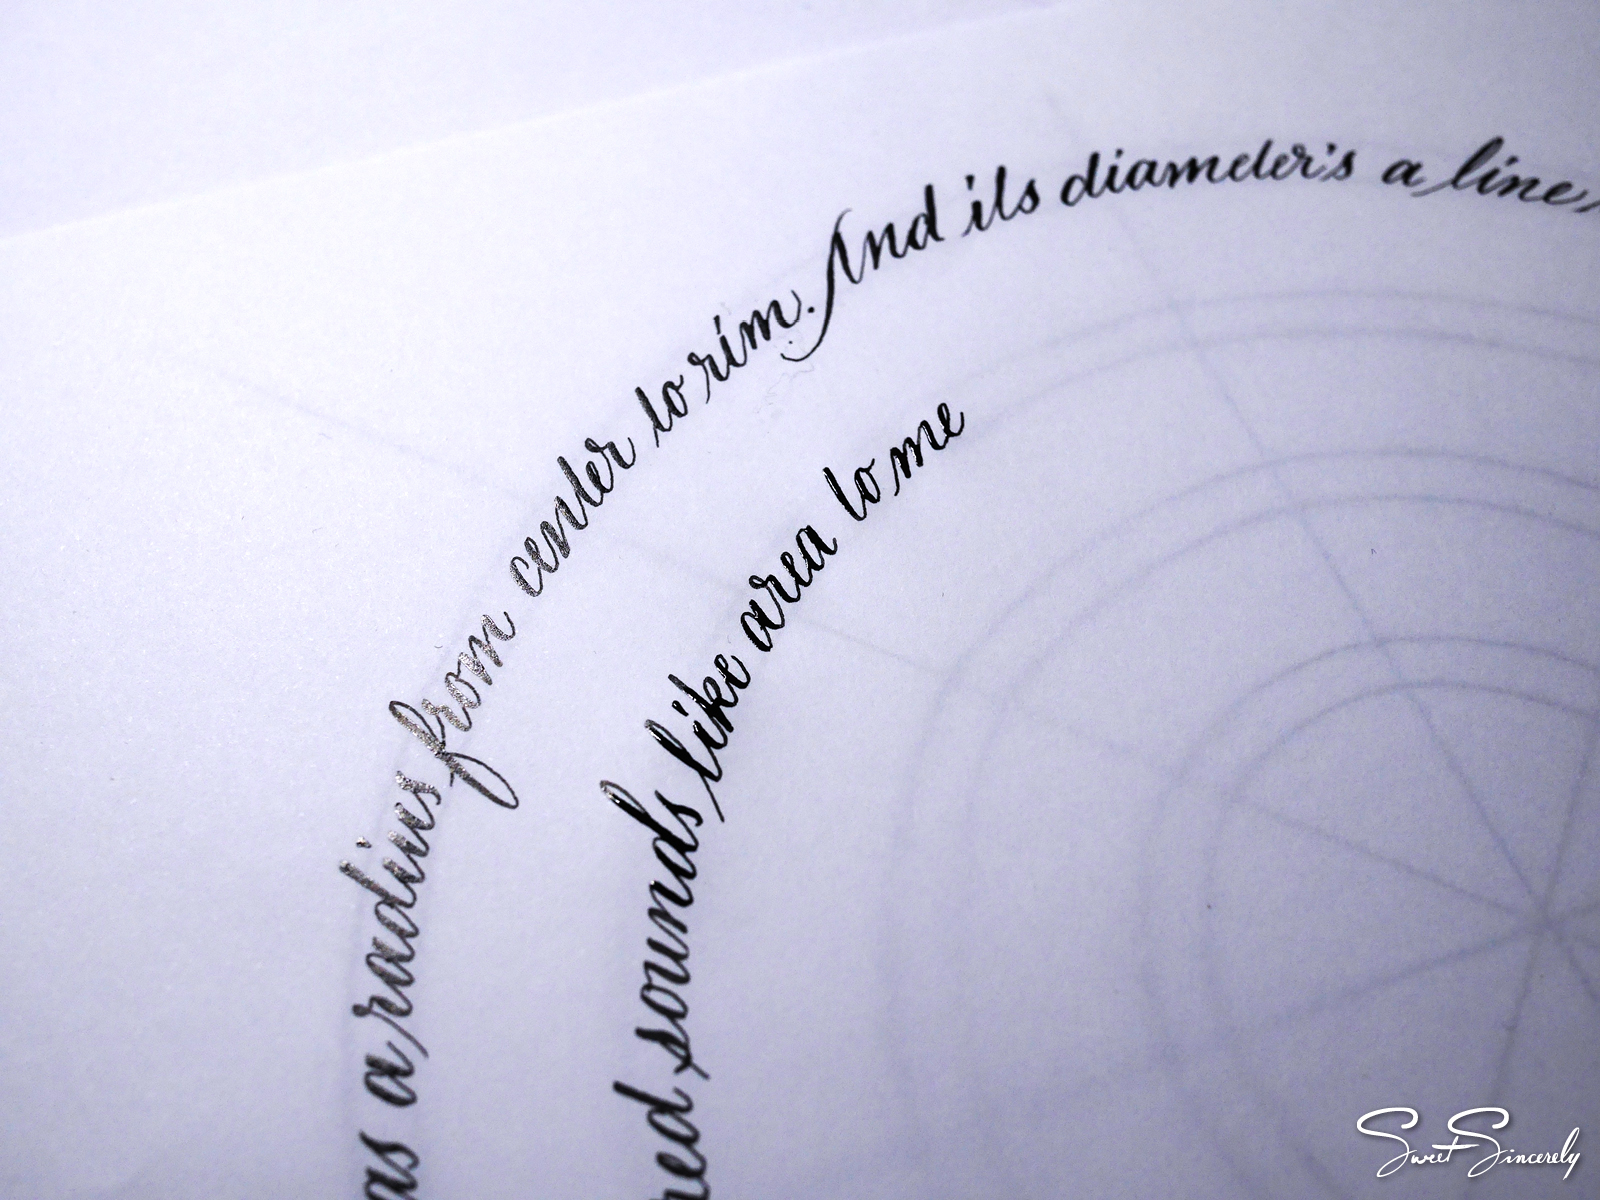 as a radius from center to rim. And its diameter's a line,
red sounds like area to me
Sweet Sincerely